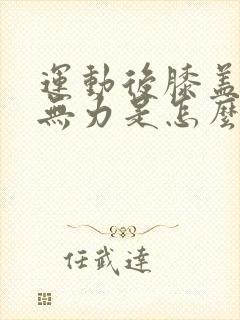 運動後膝蓋
無力是怎麼
任武達